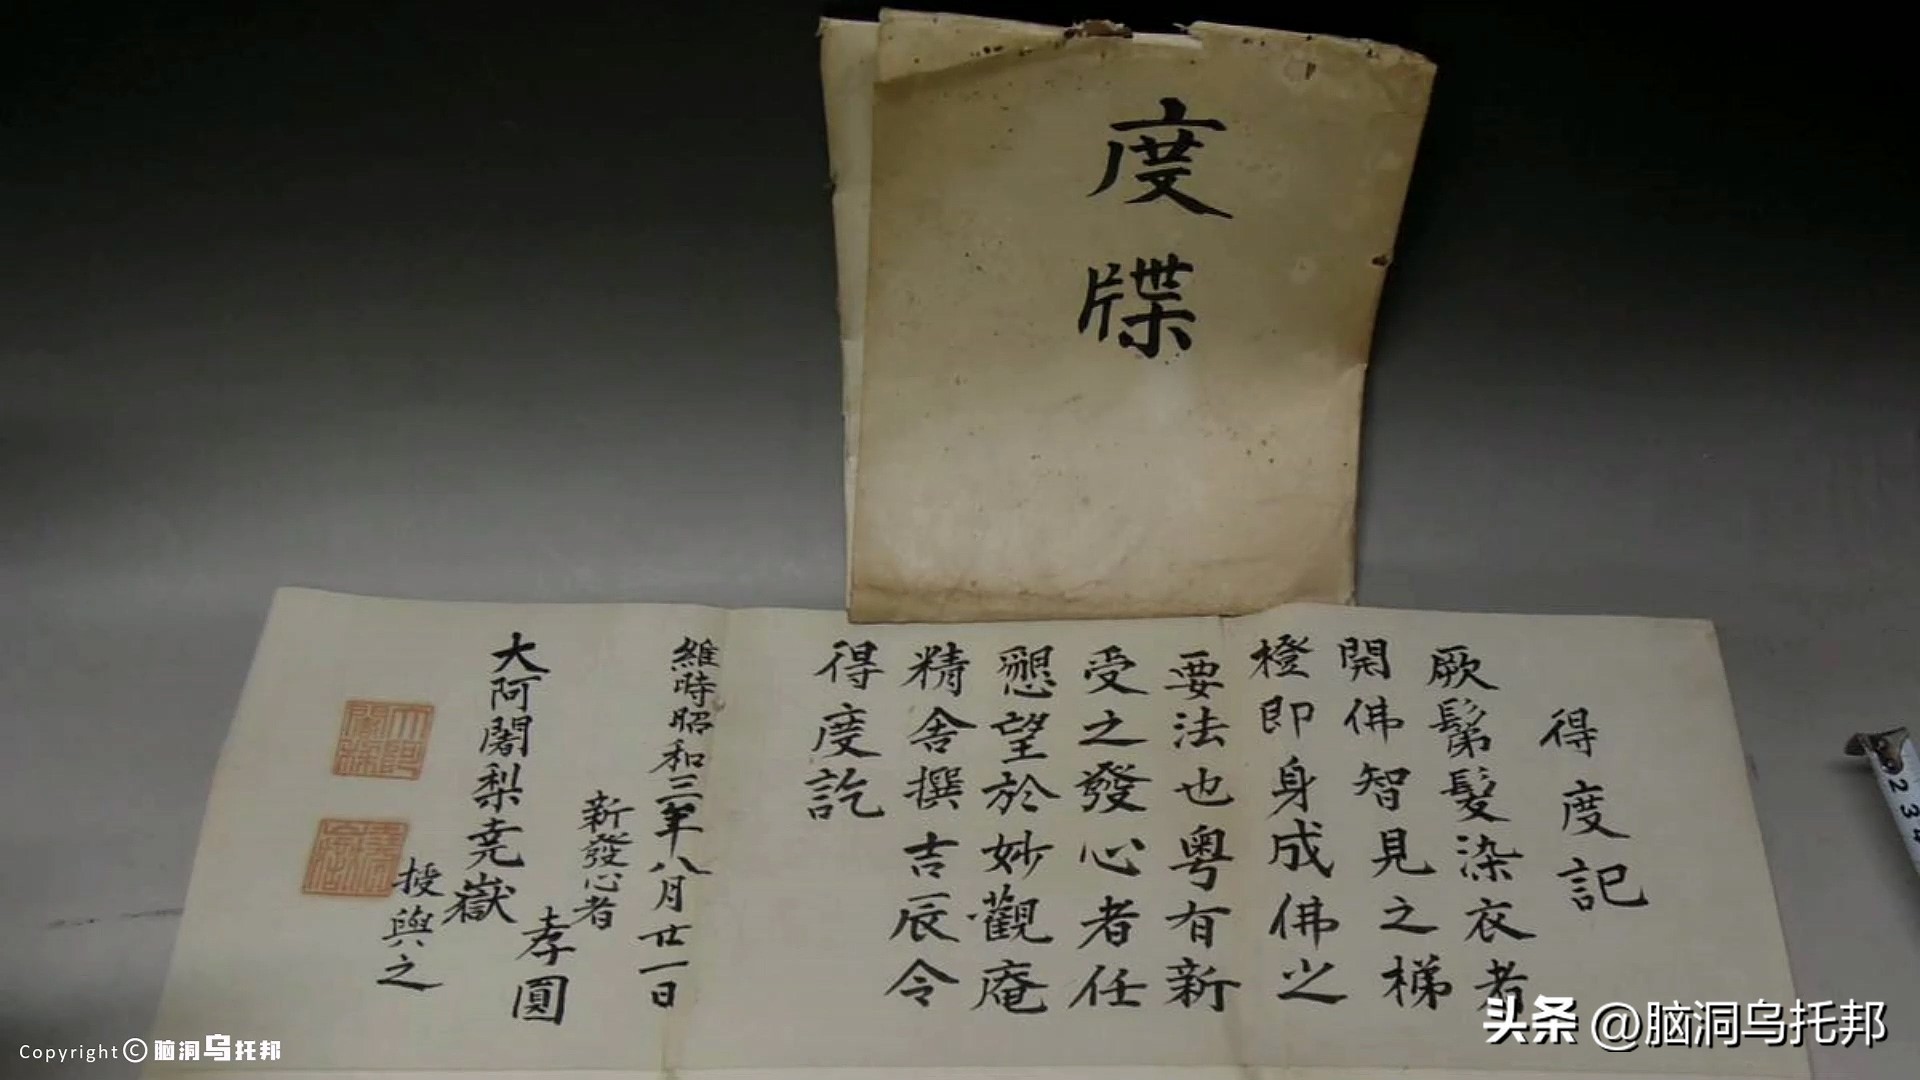 度牒
得度記
厥鬀髮染衣者
開佛智見之梯
橙即身成佛之
要法也粤有新
受之發心者任
懇望於妙觀庵
精舍撰吉辰令
得度訖
維時昭和三年八月廿一日
新發心者
孝圓
大阿闍梨尭嶽
授與之
234
头条 @脑洞乌托邦
Copyright © 脑洞乌托邦